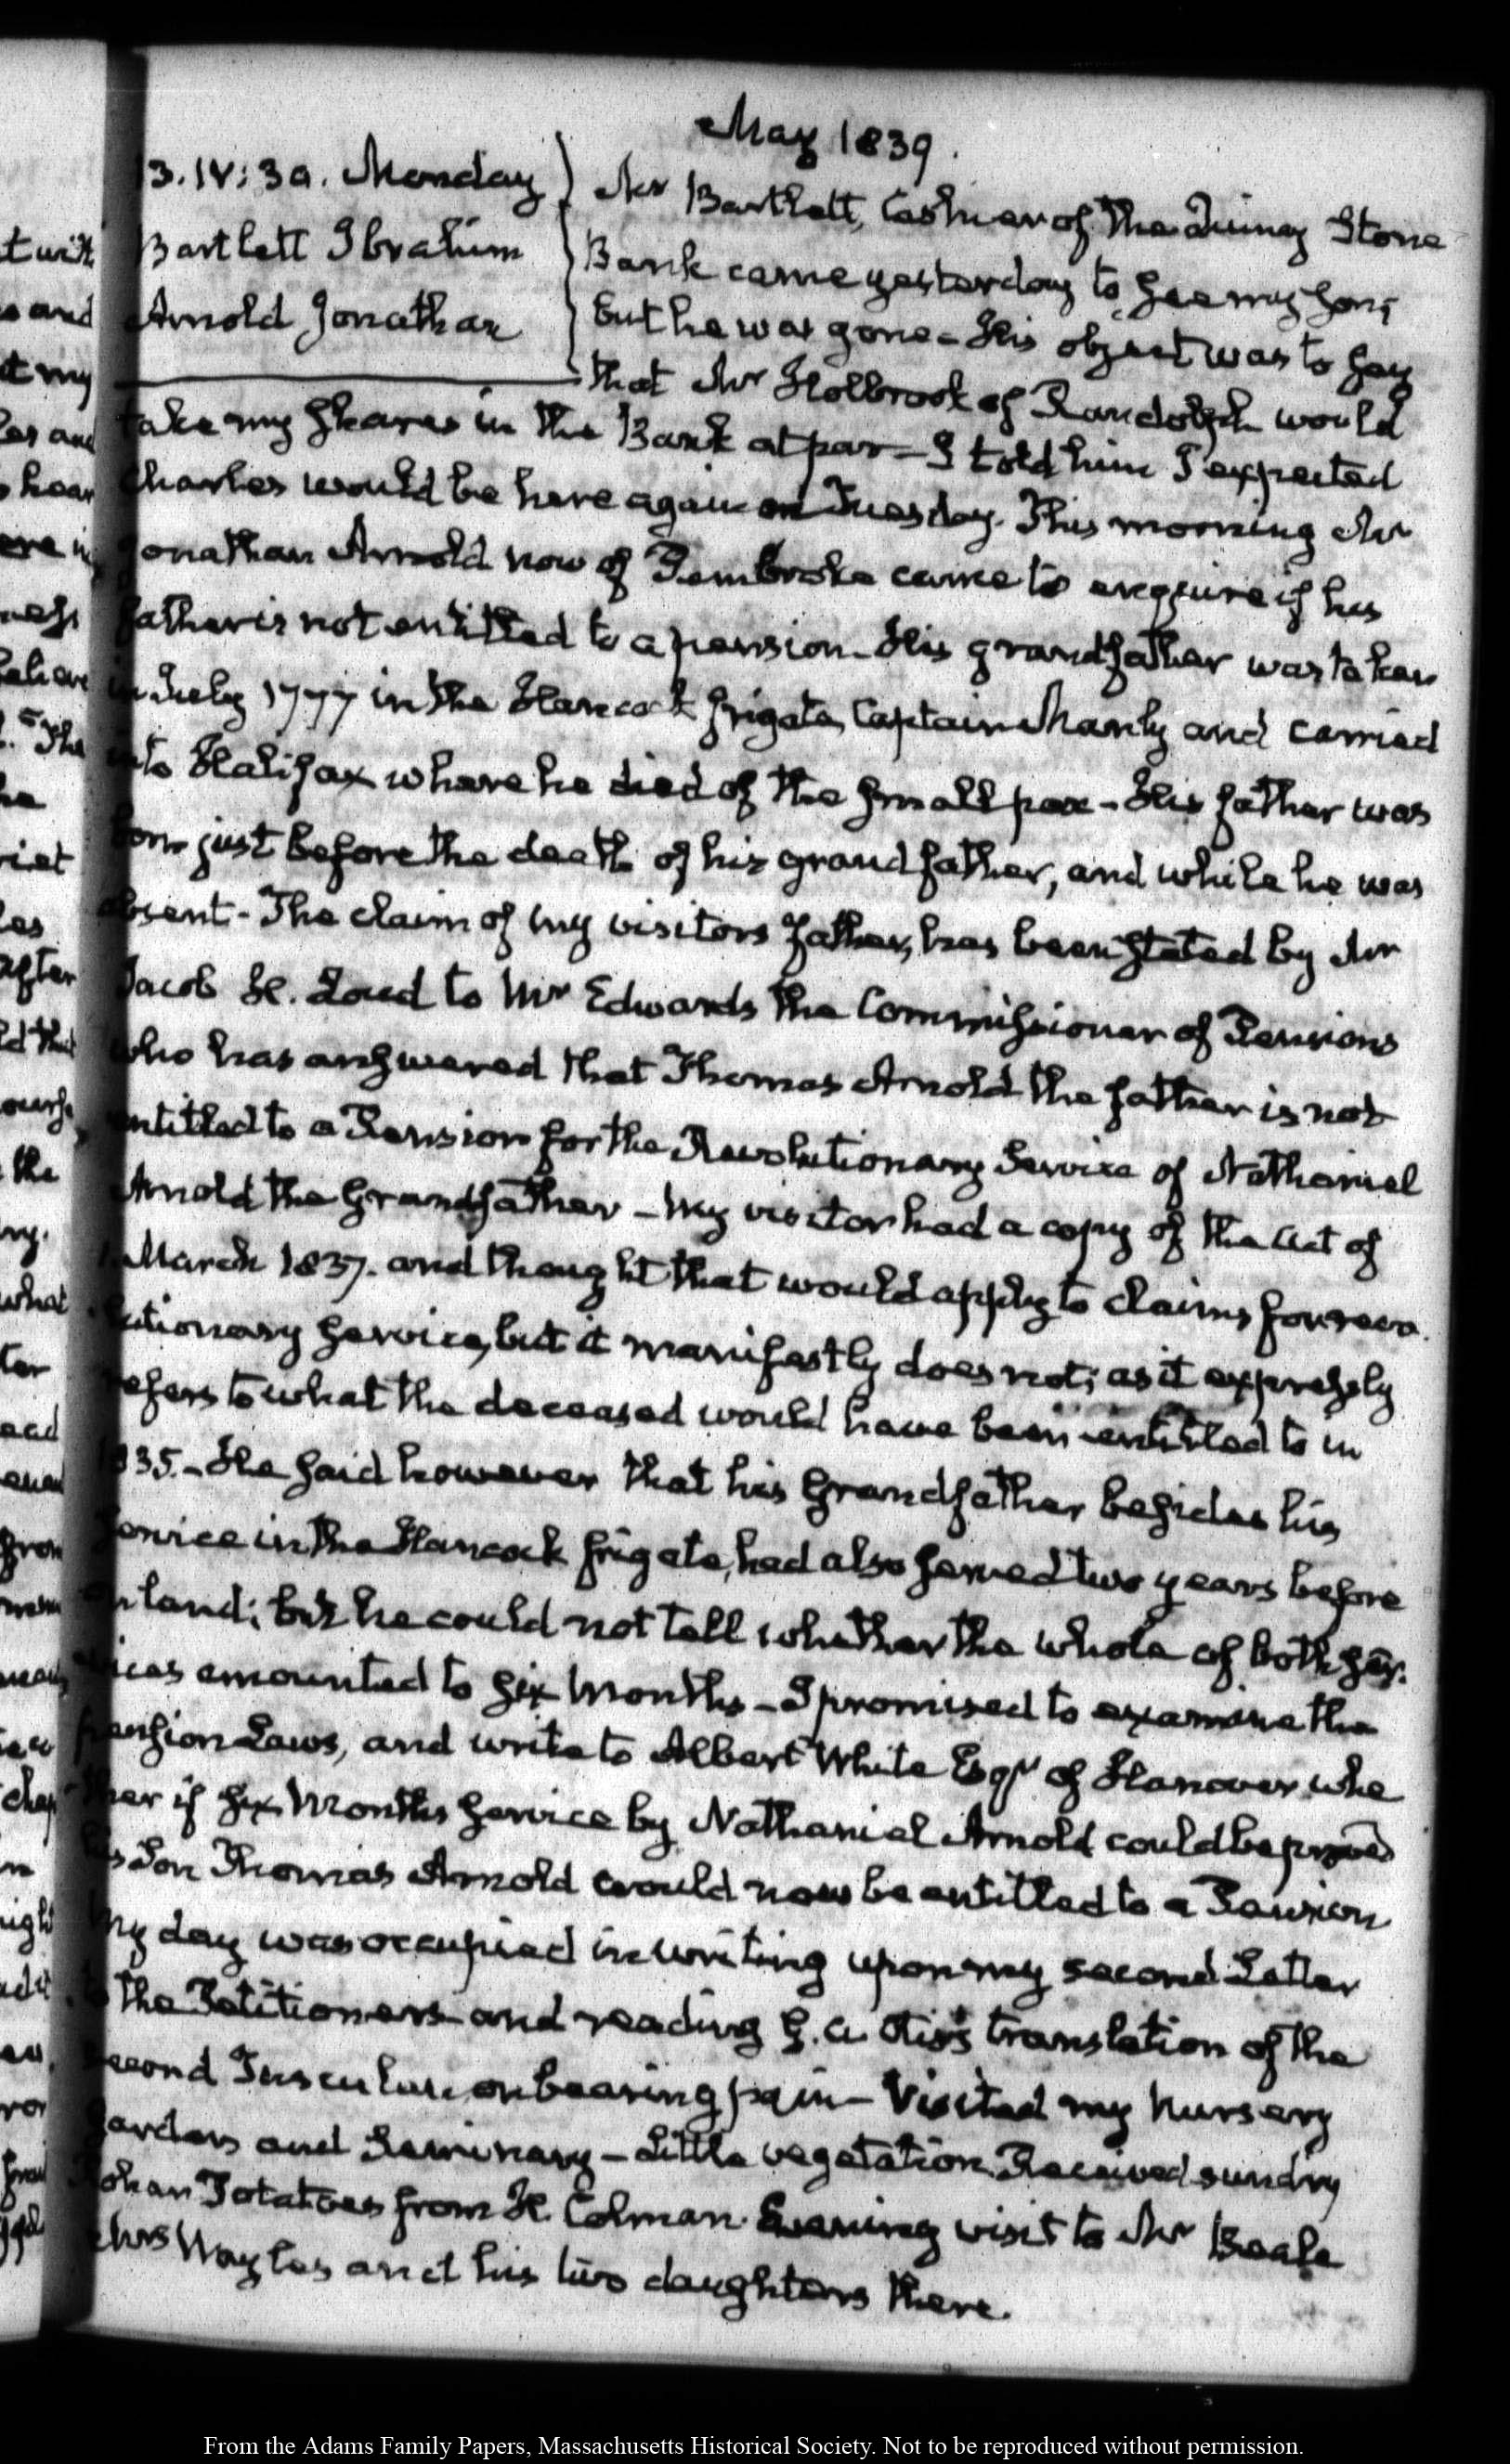 May 1839.
13. IV:30. Monday
Bartlett Ibrahim
Arnold Jonathan
Mr Bartlett, Cashier of the Quincy Stone
Bank came yesterday to see my Son;
but he was gone - His object was to say
that Mr Holbrook of Randolph would
take my shares in the Bank at par - I told him I expected
Charles would be here again on Tuesday. This morning Mr
Jonathan Arnold now of Pembroke came to enquire if his
father is not entitled to a pension - His grandfather was taken
in July 1777 in the Hancock frigate, Captain Manly and carried
into Halifax where he died of the small pox - His father was
born just before the death of his grandfather, and while he was
absent - The claim of my visitors father, has been stated by Mr
Jacob H. Loud to Mr Edwards the Commissioner of Pensions
who has answered that Thomas Arnold the father is not
entitled to a Pension for the Revolutionary Service of Nathaniel
Arnold the Grandfather - My visitor had a copy of the Act of
March 1837. and thought that would apply to claims for revo-
lutionary service, but it manifestly does not; as it expressly
refers to what the deceased would have been entitled to in
1835. - He said however that his Grandfather besides his
service in the Hancock frigate, had also served two years before
on land; but he could not tell whether the whole of both ser-
vices amounted to six months - I promised to examine the
pension Laws, and write to Albert White Esqr of Hanover whe-
ther if six months service by Nathaniel Arnold could be proved
his Son Thomas Arnold would now be entitled to a Pension
My day was occupied in writing upon my second Letter
to the Petitioners and reading G. A. Otis's translation of the
second Tusculan on bearing pain - Visited my nursery
garden and Seminary - Little vegetation. Received sundry
Rohan Potatoes from H. Colman. Evening visit to Mr Beale
Mrs and his two daughters there.
t with
and
my
hear
The
he
les
after
the
what
From the Adams Family Papers, Massachusetts Historical Society. Not to be reproduced without permission.